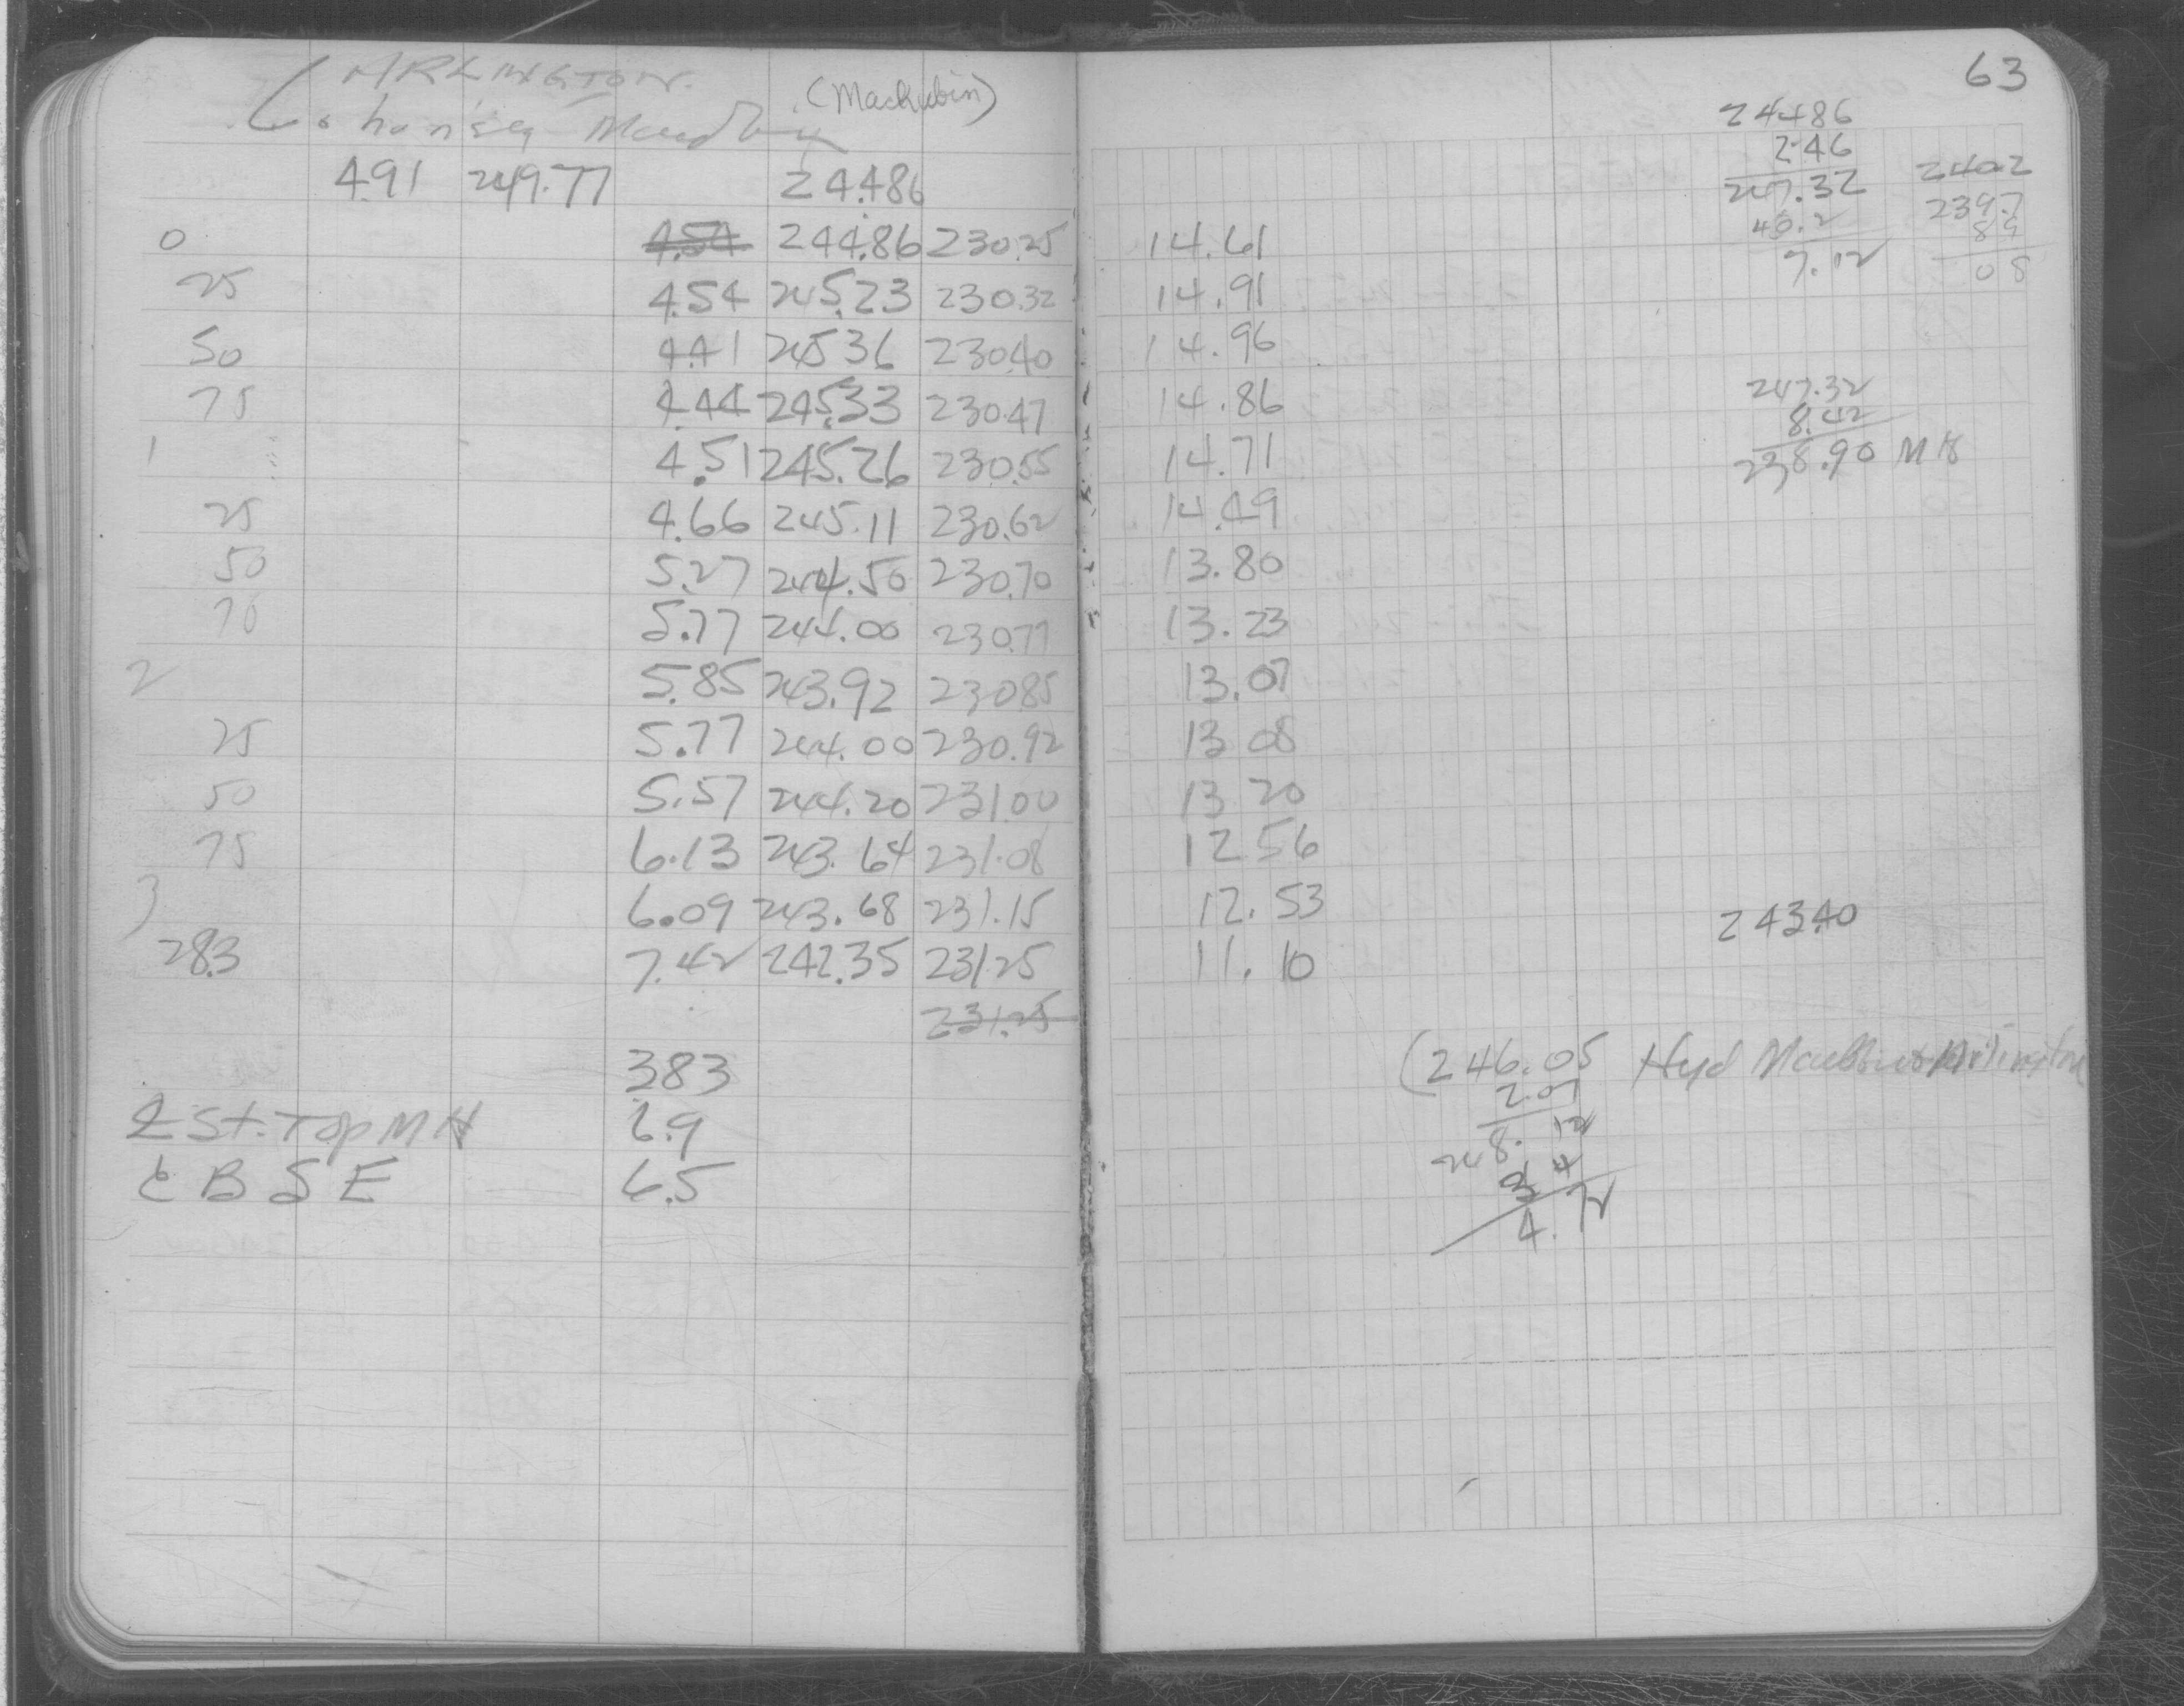 ARLINGTON.
(Mackubin)
4.91 249.77 244.86
0 4.54 244.86 230.25 14.61
25 4.54 245.23 230.32 14.91
50 4.41 245 36 230.40 14.96
75 4.44 245.33 230.47 14.86
1 4.51 245.26 230.55 14.71
25 4.66 245.11 230.62 14.49
50 5.27 244.50 230.70 13.80
70 5.77 244.00 230.77 13.23
2 5.85 243.92 230.85 13.07
25 5.77 244.00 230.92 13 08
50 5.57 244.20 231.00 13 20
75 6.13 243.64 231.08 12 56
3 6.09 243.68 231.15 12.53
28.3 7.42 242.35 231.25 11.10
231.25
383
St. Top MH 6.9
B S E 6.5
63
244.86
2.46
247.32
40.2
7.12
240.2
239.7
89
08
247.32
8.42
238.90 MH
243.40
(246.05 Hyd
2.07
248.12
4.72